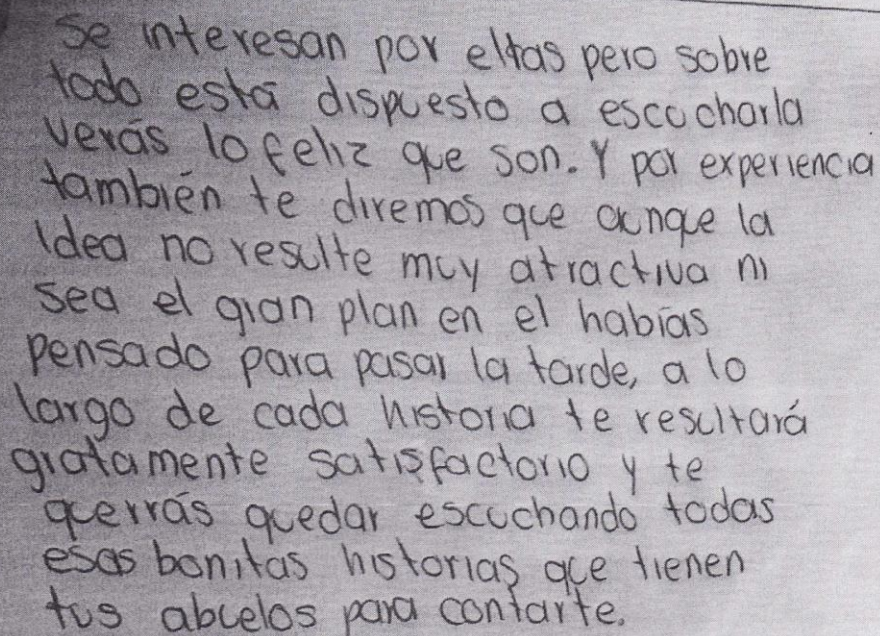 Se interesan por ellas pero sobre
todo está dispuesto a escucharla
verás lo feliz que son. Y por experiencia
también te diremos que aunque la
idea no resulte muy atractiva ni
sea el gran plan en el habías
pensado para pasar la tarde, a lo
largo de cada historia te resultará
gratamente satisfactorio y te
querrás quedar escuchando todas
esas bonitas historias que tienen
tus abuelos para contarte.